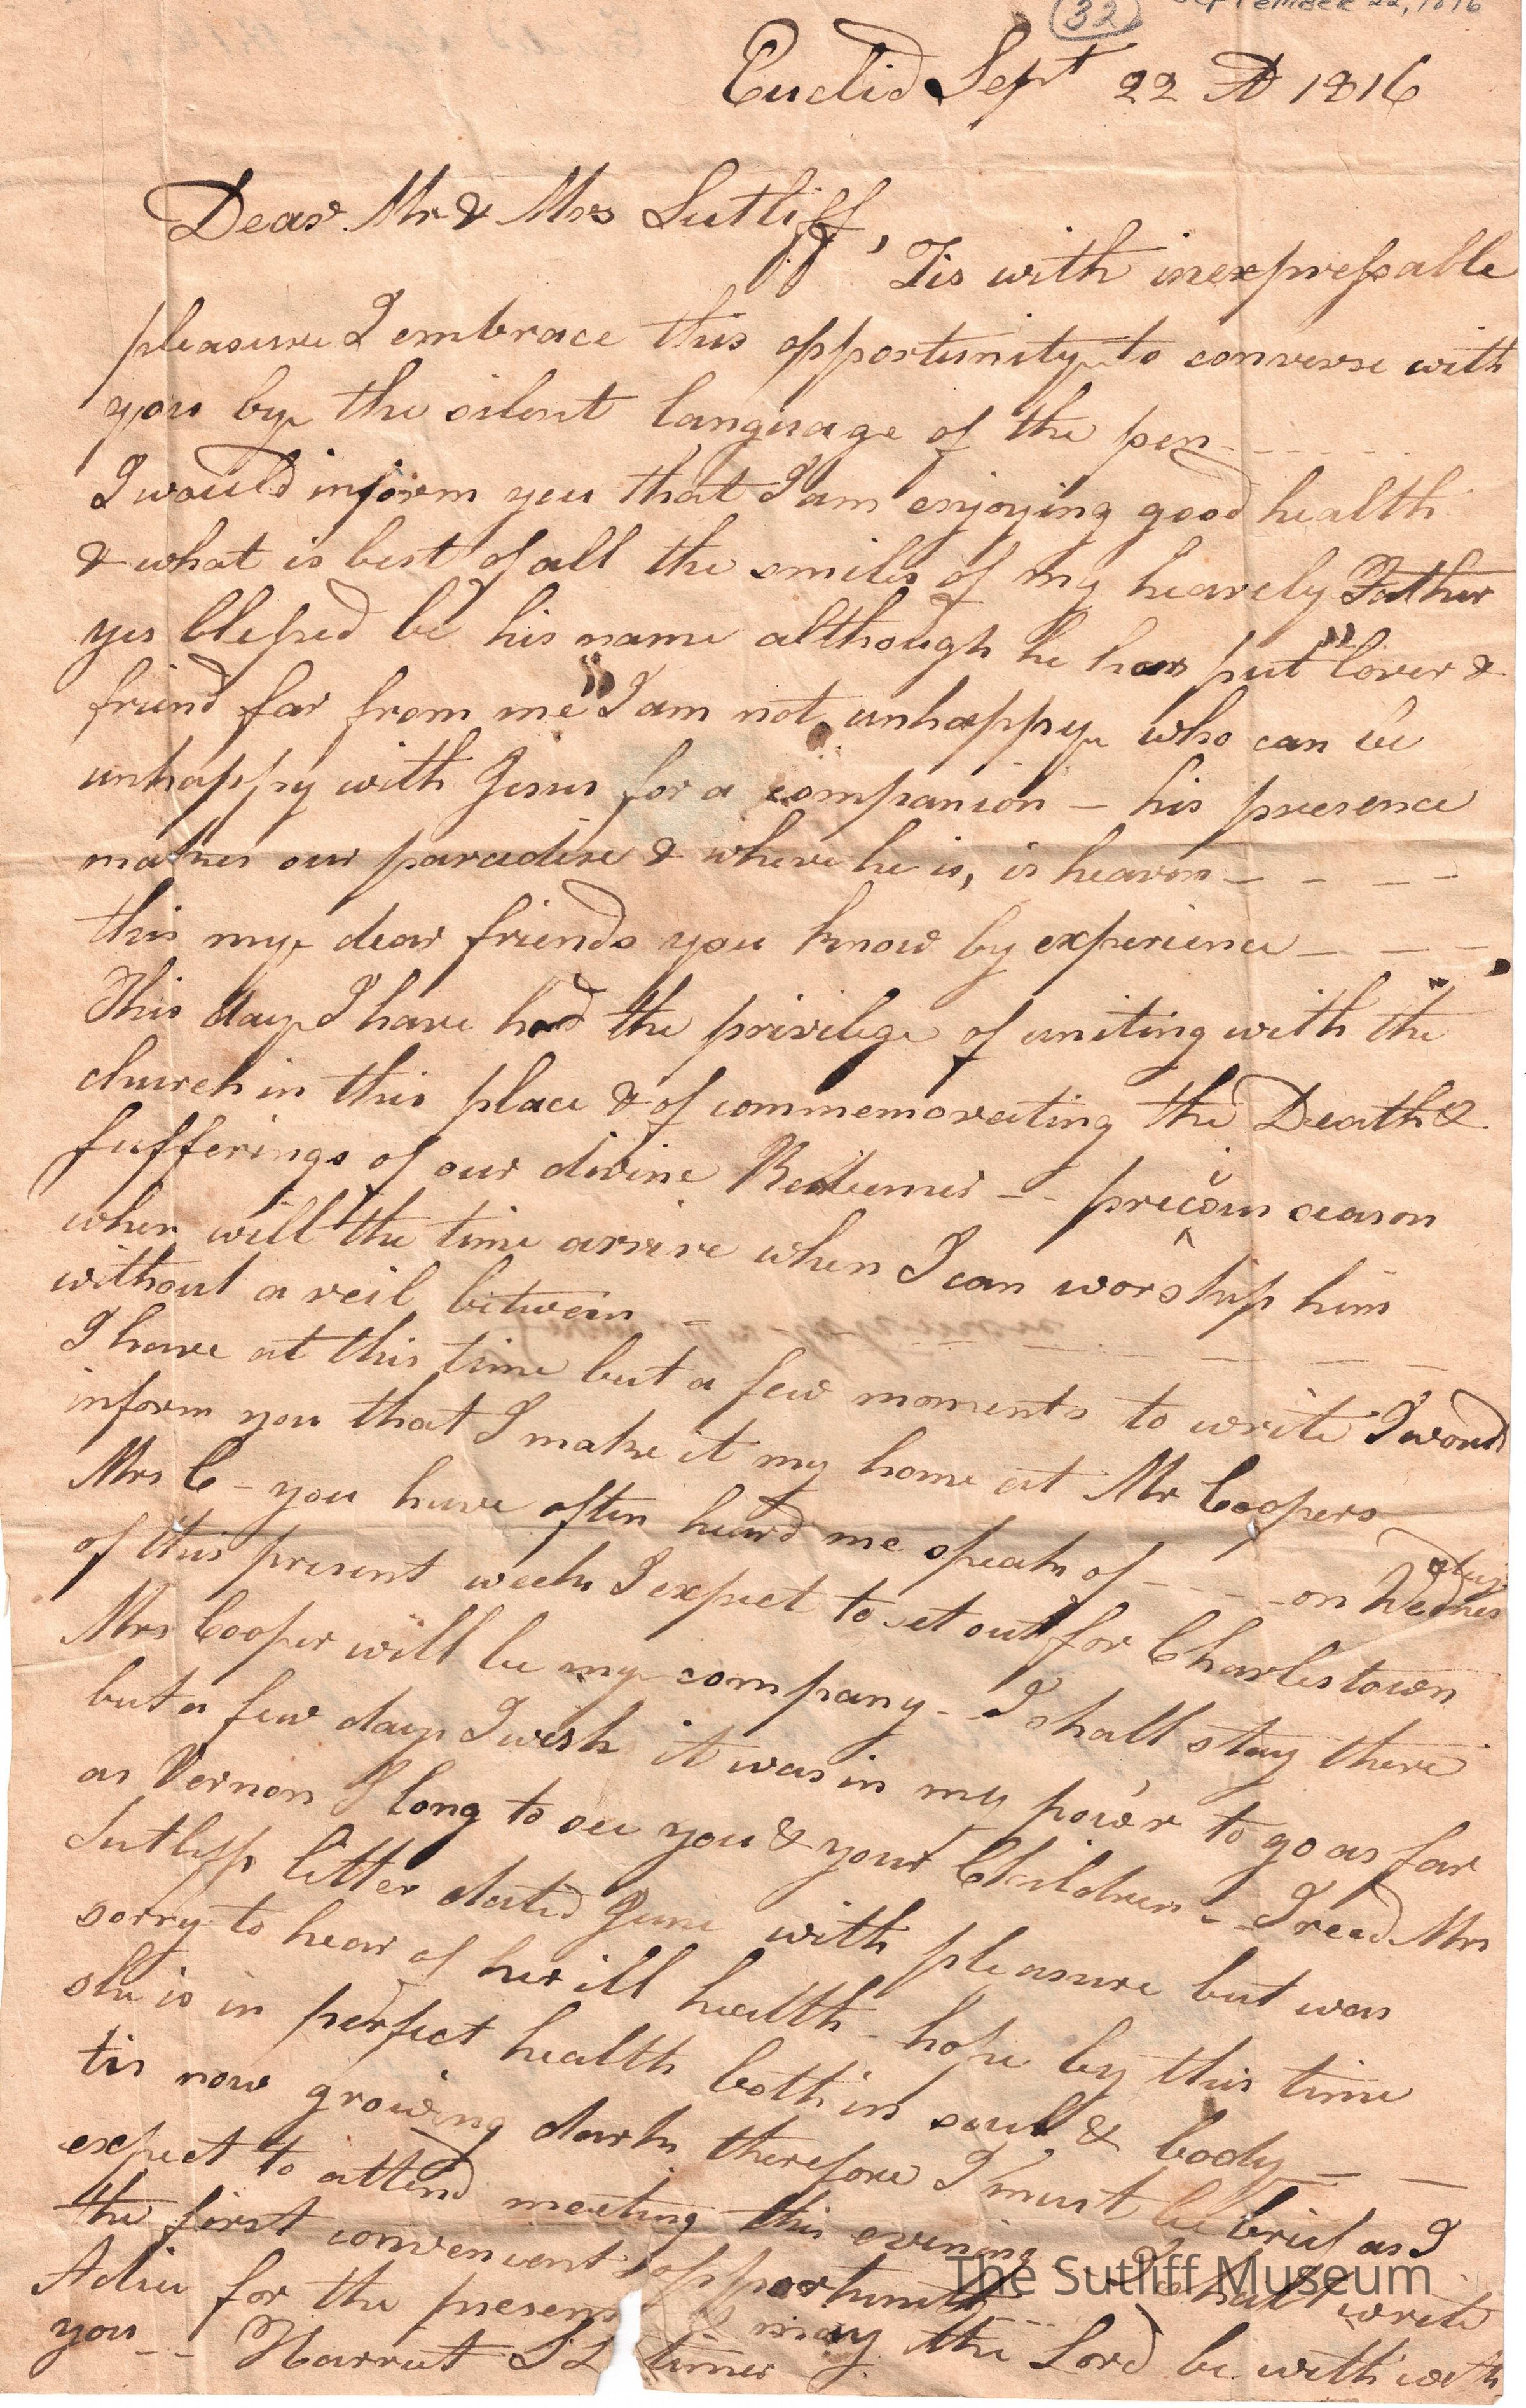 32 September 22, 1816
Euclid Sept 22 AD 1816
Dear Mr & Mrs Sutliff,
Tis with inexpressable
pleasure I embrace this opportunity to converse with
you by the silent language of the pen - - - - - -
I would inform you that I am enjoying good health
& what is best of all the smiles of my heavely Father
yes blessed be his name although he has put "lover &
friend far from me" I am not unhappy who can be
unhappy with Jesus for a companion – his presence
makes our paradise & where he is, is heaven – – – –
this my dear friends you know by experience – – –
This day I have had the privilege of uniting with the
church in this place & of commemorating the Death &
sufferings of our divine Redeemer – – precious season
when will the time arrive when I can worship him
without a veil between – – – – –
I have at this time but a few moments to write I would
inform you that I make it my home at Mr Coopers
Mrs C – you have often heard me speak of - - - - on Wednesday
of this present week I expect to set out for Charlestown
Mrs Cooper will be my company – I shall stay there
but a few days I wish it was in my power to go as far
as Vernon I long to see you & your Children – – I read Mrs
Sutliffs letter dated June with pleasure but was
sorry to hear of her ill health – hope by this time
she is in perfect health both in soul & body – –
tis now growing dark therefore I must be brief as I
expect to attend meeting this evening I shall write
the first convenient opportunity - - -
Adieu for the present may the Lord be with with
you - - Harriet
The Sutliff Museum